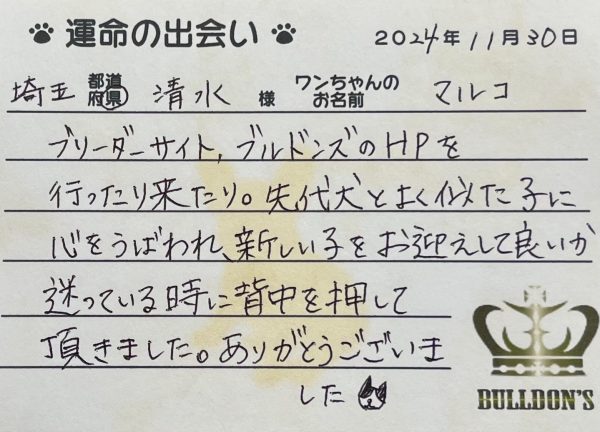 運命の出会い 2024年11月30日
埼玉 都道府県 清水 様 ワンちゃんのお名前 マルコ
ブリーダーサイト,ブルドンズのHPを
行ったり来たり。先代犬とよく似た子に
心をうばわれ、新しい子をお迎えして良いか
迷っている時に背中を押して
頂きました。ありがとうございま
した
BULLDON'S